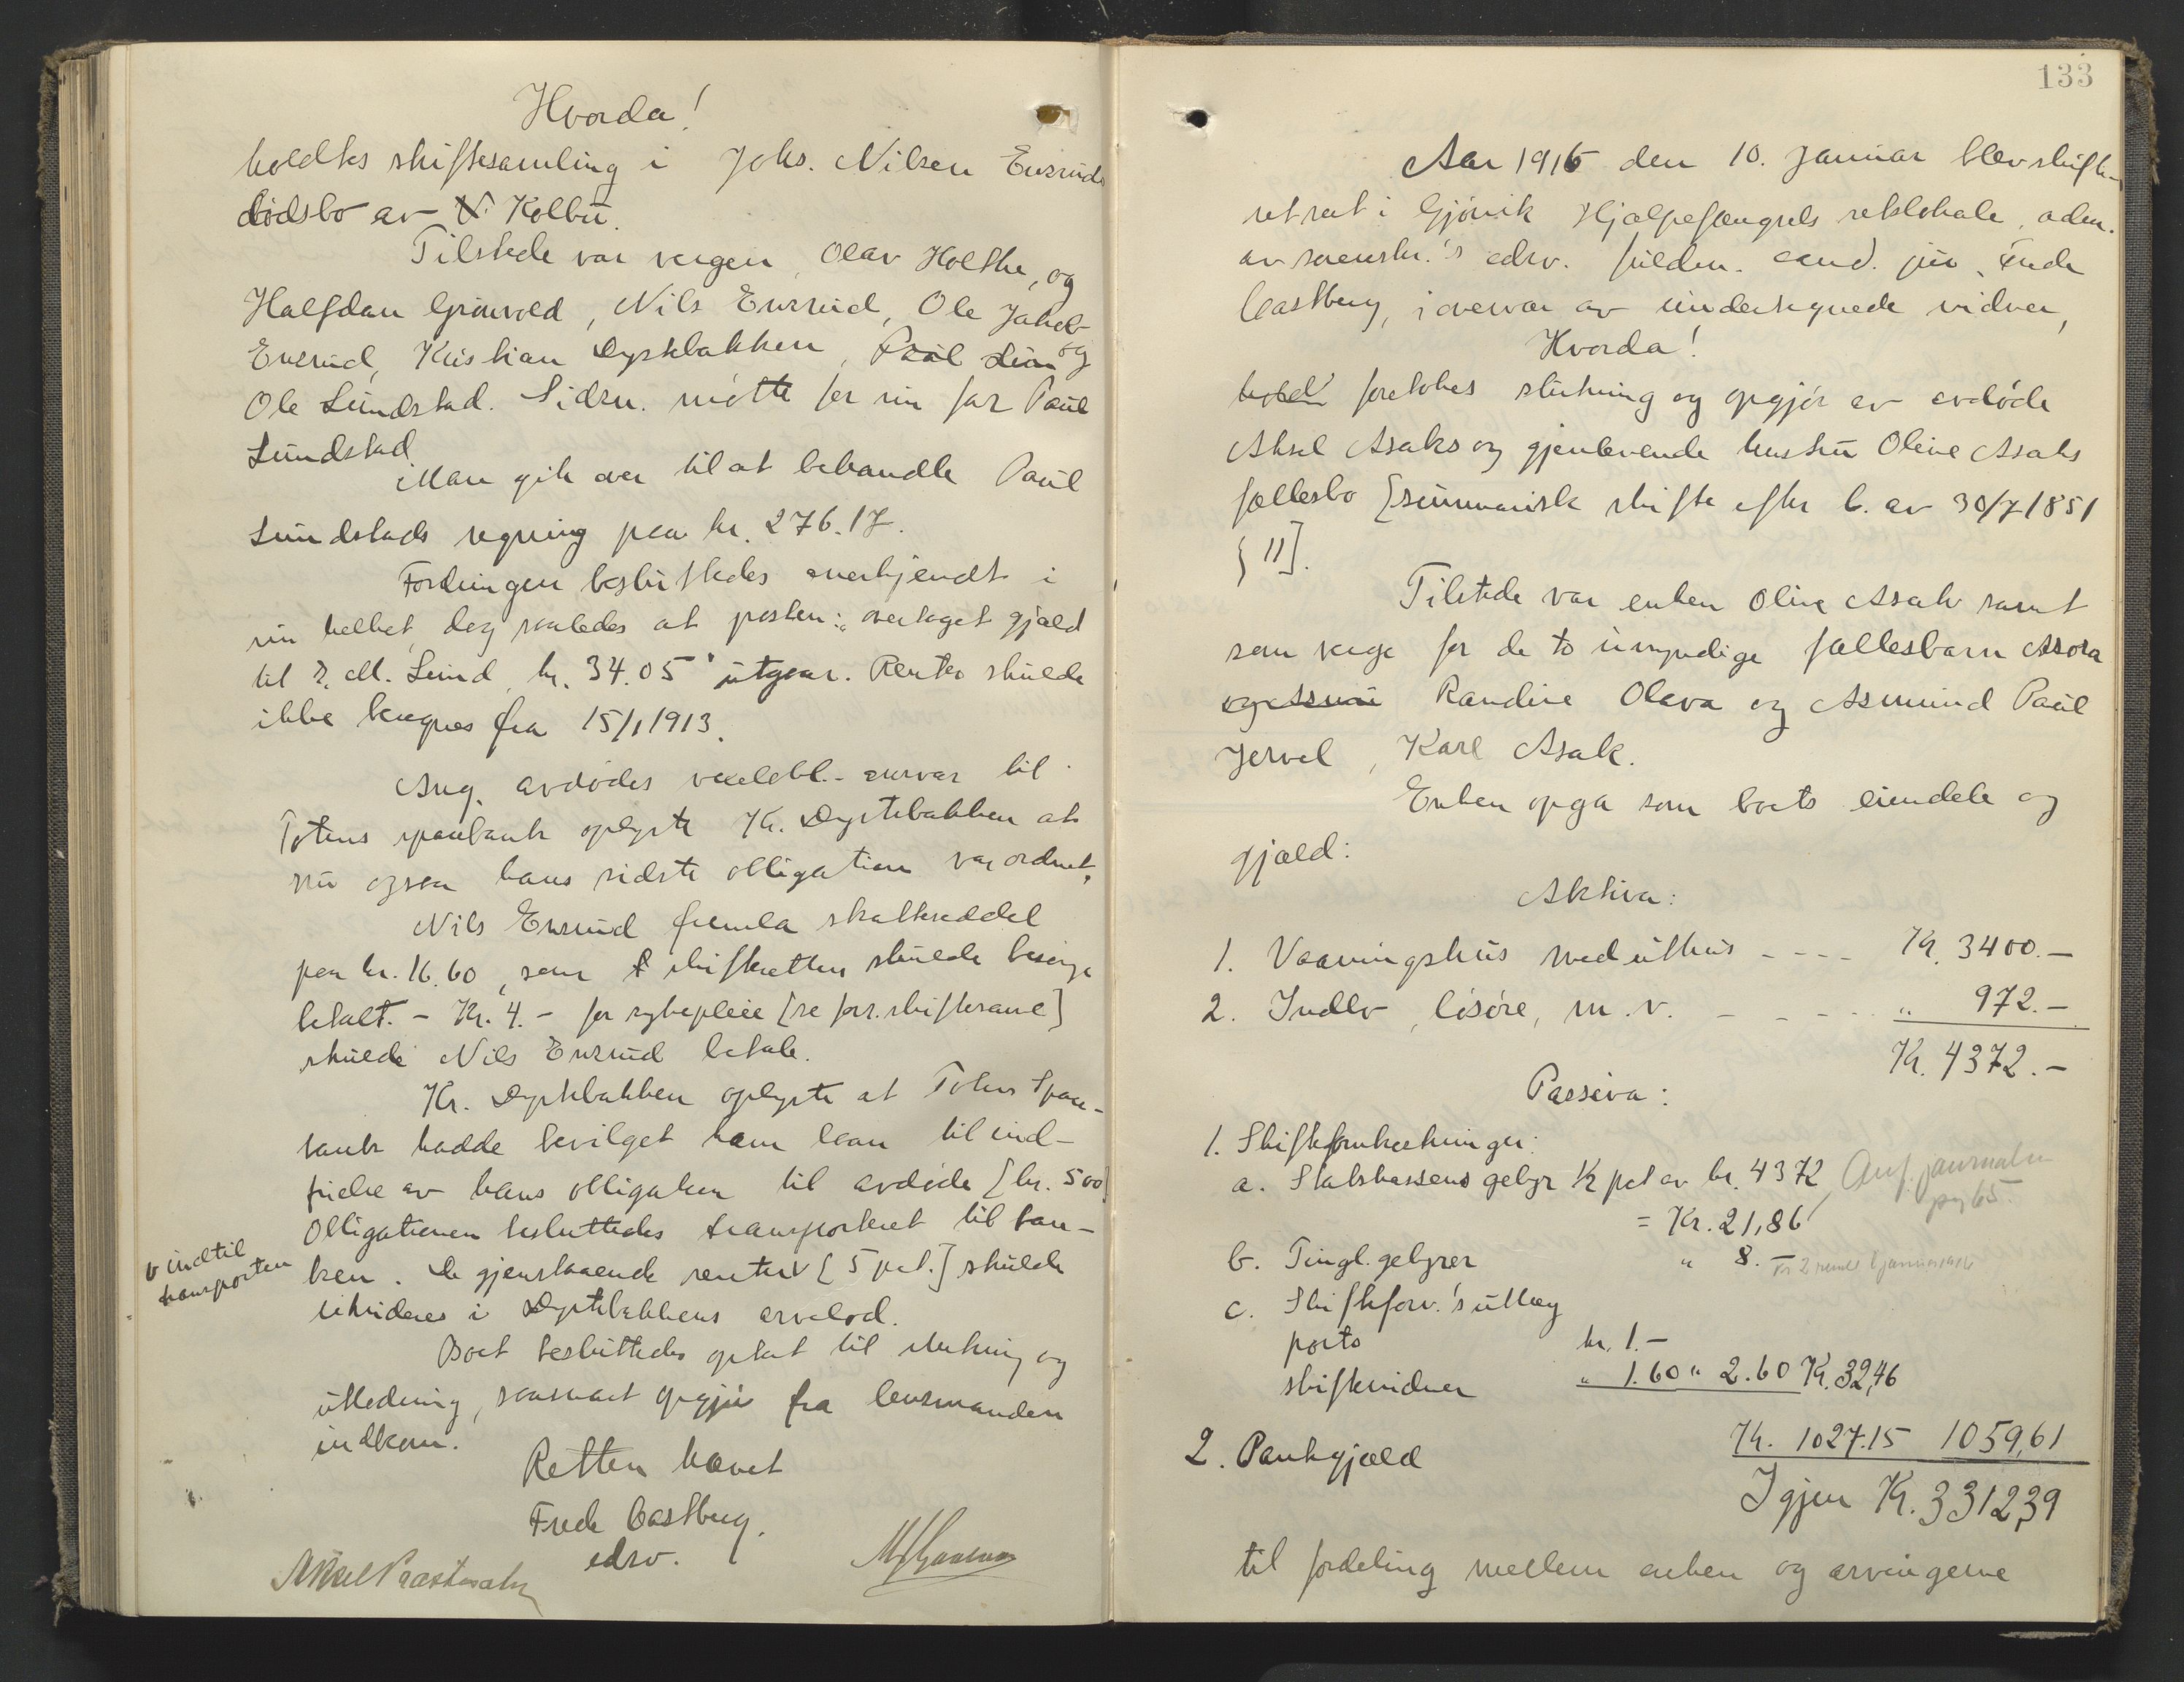 Hvorda!
holdtes skiftesamling i Johs. Nilsen Enzruds
dödsbo av N. Kolbu.
Tilstede var vergen, Olav Holthe, og
Halfdan Grönvold, Nils Enzrud, Ole Jakob
Enzrud, Kristian Dystebakken, Paul Lun og
Ole Lundstad. Sidsn. mötte for sin far Paul
Lundstad.
Man gik over til at behandle Paul
Lundstads regning paa kr. 276.17.
Fordringen besluttedes anerkjendt i
sin helhet, dog saaledes at posten: „overtaget gjæld
til P. M. Lund, kr. 34.05" utgaar. Renter skulde
ikke beregnes fra 15/1 1913.
Ang. avdödes vexelobl.-ansvar til
Totens sparebank oplyste Kr. Dystebakken at
nu ogsaa hans sidste obligation var ordnet.
Nils Enzrud fremla skatteseddel
paa kr. 16.60, som skifteretten skulde besörge
betalt. - Kr. 4.- for sykepleie [se forr. skiftesaml]
skulde Nils Enzrud betale.
Kr. Dystebakken oplyste at Totens Spare-
bank hadde bevilget ham laan til ind-
frielse av hans obligation til avdöde [kr. 500]
Obligationen besluttedes transporteret til ban-
ken. De gjenstaaende renter v [5 pct.] skulde
v indtil
transporten
likvideres i Dystebakkens arvelod.
Boet besluttedes optat til slutning og
utlodning, saasnart opgjör fra lensmanden
indkom.
Retten hævet
Frede Castberg.
edsv.
133
Aar 1916 den 10. Januar blev skifte-
ret sat i Gjövik Hjælpefængsels retslokale, adm.
av sorenskr.'s edsv. fuldm. cand. jur. Frede
Castberg, i overvær av undertegnede vidner,
Hvorda!
holdt foretokes slutning og opgjör av avdöde
Aksel Asaks og gjenlevende hustru Oline Asaks
fællesbo [summarisk skifte efter l. av 30/7 1851
§ 11].
Tilstede var enken Oline Asak samt
som verge for de to umyndige fællesbarn Assora
og Asmu Randine Olava og Asmund Paul
Jervel, Karl Asak.
Enken opga som boets eiendele og
gjæld:
Aktiva:
1. Vaaningshus med uthus - - - - Kr. 3400.-
2. Indbo, lösöre, m.v. - - - - - " 972.-
Kr. 4372.-
Passiva:
1. Skifteomkostninger:
a. Statskassens gebyr ½ pct av kr. 4372, Anf. journalen
= Kr. 21,86 pg 65.
b. Tingl. gebyrer " 8.
c. Skifteforv.'s utlæg
porto kr. 1.-
skiftevidner " 1.60 " 2.60 Kr. 32,46
2. Pantegjæld Kr. 1027.15 1059,61
Igjen Kr. 3312,39
til fordeling mellem enken og arvingerne